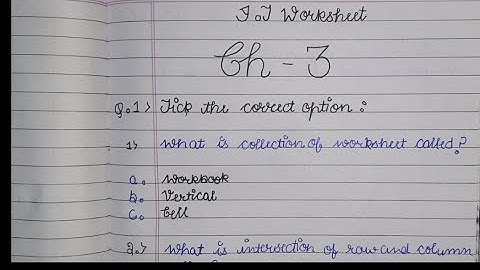 I.T Worksheet
Ch - 3
Q.1> Tick the correct option :
1> What is collection of worksheet called?
a. Workbook
b. Vertical
c. Cell
2.> What is intersection of row and column